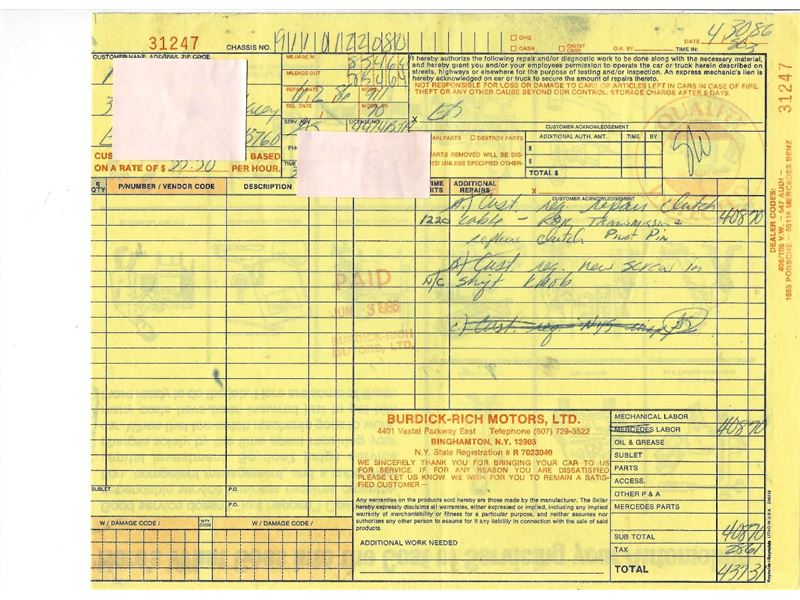 31247
CHASSIS NO.
CHG
CASH
CREDIT CARD
O.K. BY
DATE 4/30/86
TIME IN:
CUSTOMER NAME ADDRESS ZIP CODE
MILEAGE IN 55464
MILEAGE OUT 55464
I hereby authorize the following repair and/or diagnostic work to be done along with the necessary material,
and hereby grant you and/or your employees permission to operate the car or truck herein described on
streets, highways or elsewhere for the purpose of testing and/or inspection. An express mechanic's lien is
hereby acknowledged on car or truck to secure the amount of repairs thereto.
NOT RESPONSIBLE FOR LOSS OR DAMAGE TO CARS OR ARTICLES LEFT IN CARS IN CASE OF FIRE,
THEFT OR ANY OTHER CAUSE BEYOND OUR CONTROL. STORAGE CHARGE AFTER 5 DAYS.
31247
DEL. DATE
X
CUSTOMER ACKNOWLEDGEMENT
PARTS DESTROY PARTS
DATE
ADDITIONAL AUTH. AMT.
TIME
BY
PARTS REMOVED WILL BE DIS-
UNLESS SPECIFIED OTHER-
$
$
TOTAL $
CUS BASED
ON A RATE OF $ PER HOUR.
QTY
P/NUMBER / VENDOR CODE
DESCRIPTION
TIME UNITS
ADDITIONAL REPAIRS
X
CUSTOMER ACKNOWLEDGEMENT
A) Cust. req. repair clutch
1220 cable - R&R Transmission 408 70
replace clutch Pivot Pin
B) Cust req. new screw in
N/C shift knob
c) Cust. req. NYS
PAID
JUN 3 1986
BURDICK-RICH
MOTORS, LTD.
DEALER CODES:
1655 PORSCHE - 56116 MERCEDES BENZ
BURDICK-RICH MOTORS, LTD.
4401 Vestal Parkway East Telephone (607) 729-3522
BINGHAMTON, N.Y. 13903
N.Y. State Registration # R 7023040
WE SINCERELY THANK YOU FOR BRINGING YOUR CAR TO US
FOR SERVICE. IF FOR ANY REASON YOU ARE DISSATISFIED
PLEASE LET US KNOW. WE WISH FOR YOU TO REMAIN A SATIS-
FIED CUSTOMER.-
Any warranties on the products sold hereby are those made by the manufacturer. The Seller
hereby expressly disclaims all warranties, either expressed or implied, including any implied
warranty of merchantability or fitness for a particular purpose, and neither assumes nor
authorizes any other person to assume for it any liability in connection with the sale of said
products.
ADDITIONAL WORK NEEDED
MECHANICAL LABOR
MERCEDES LABOR 408 70
OIL & GREASE
SUBLET
PARTS
ACCESS.
OTHER P & A
MERCEDES PARTS
SUB TOTAL 408 70
TAX 28 61
TOTAL 437 31
SUBLET
P.O.
P.O.
W / DAMAGE CODE /
WTY CODE
W / DAMAGE CODE /